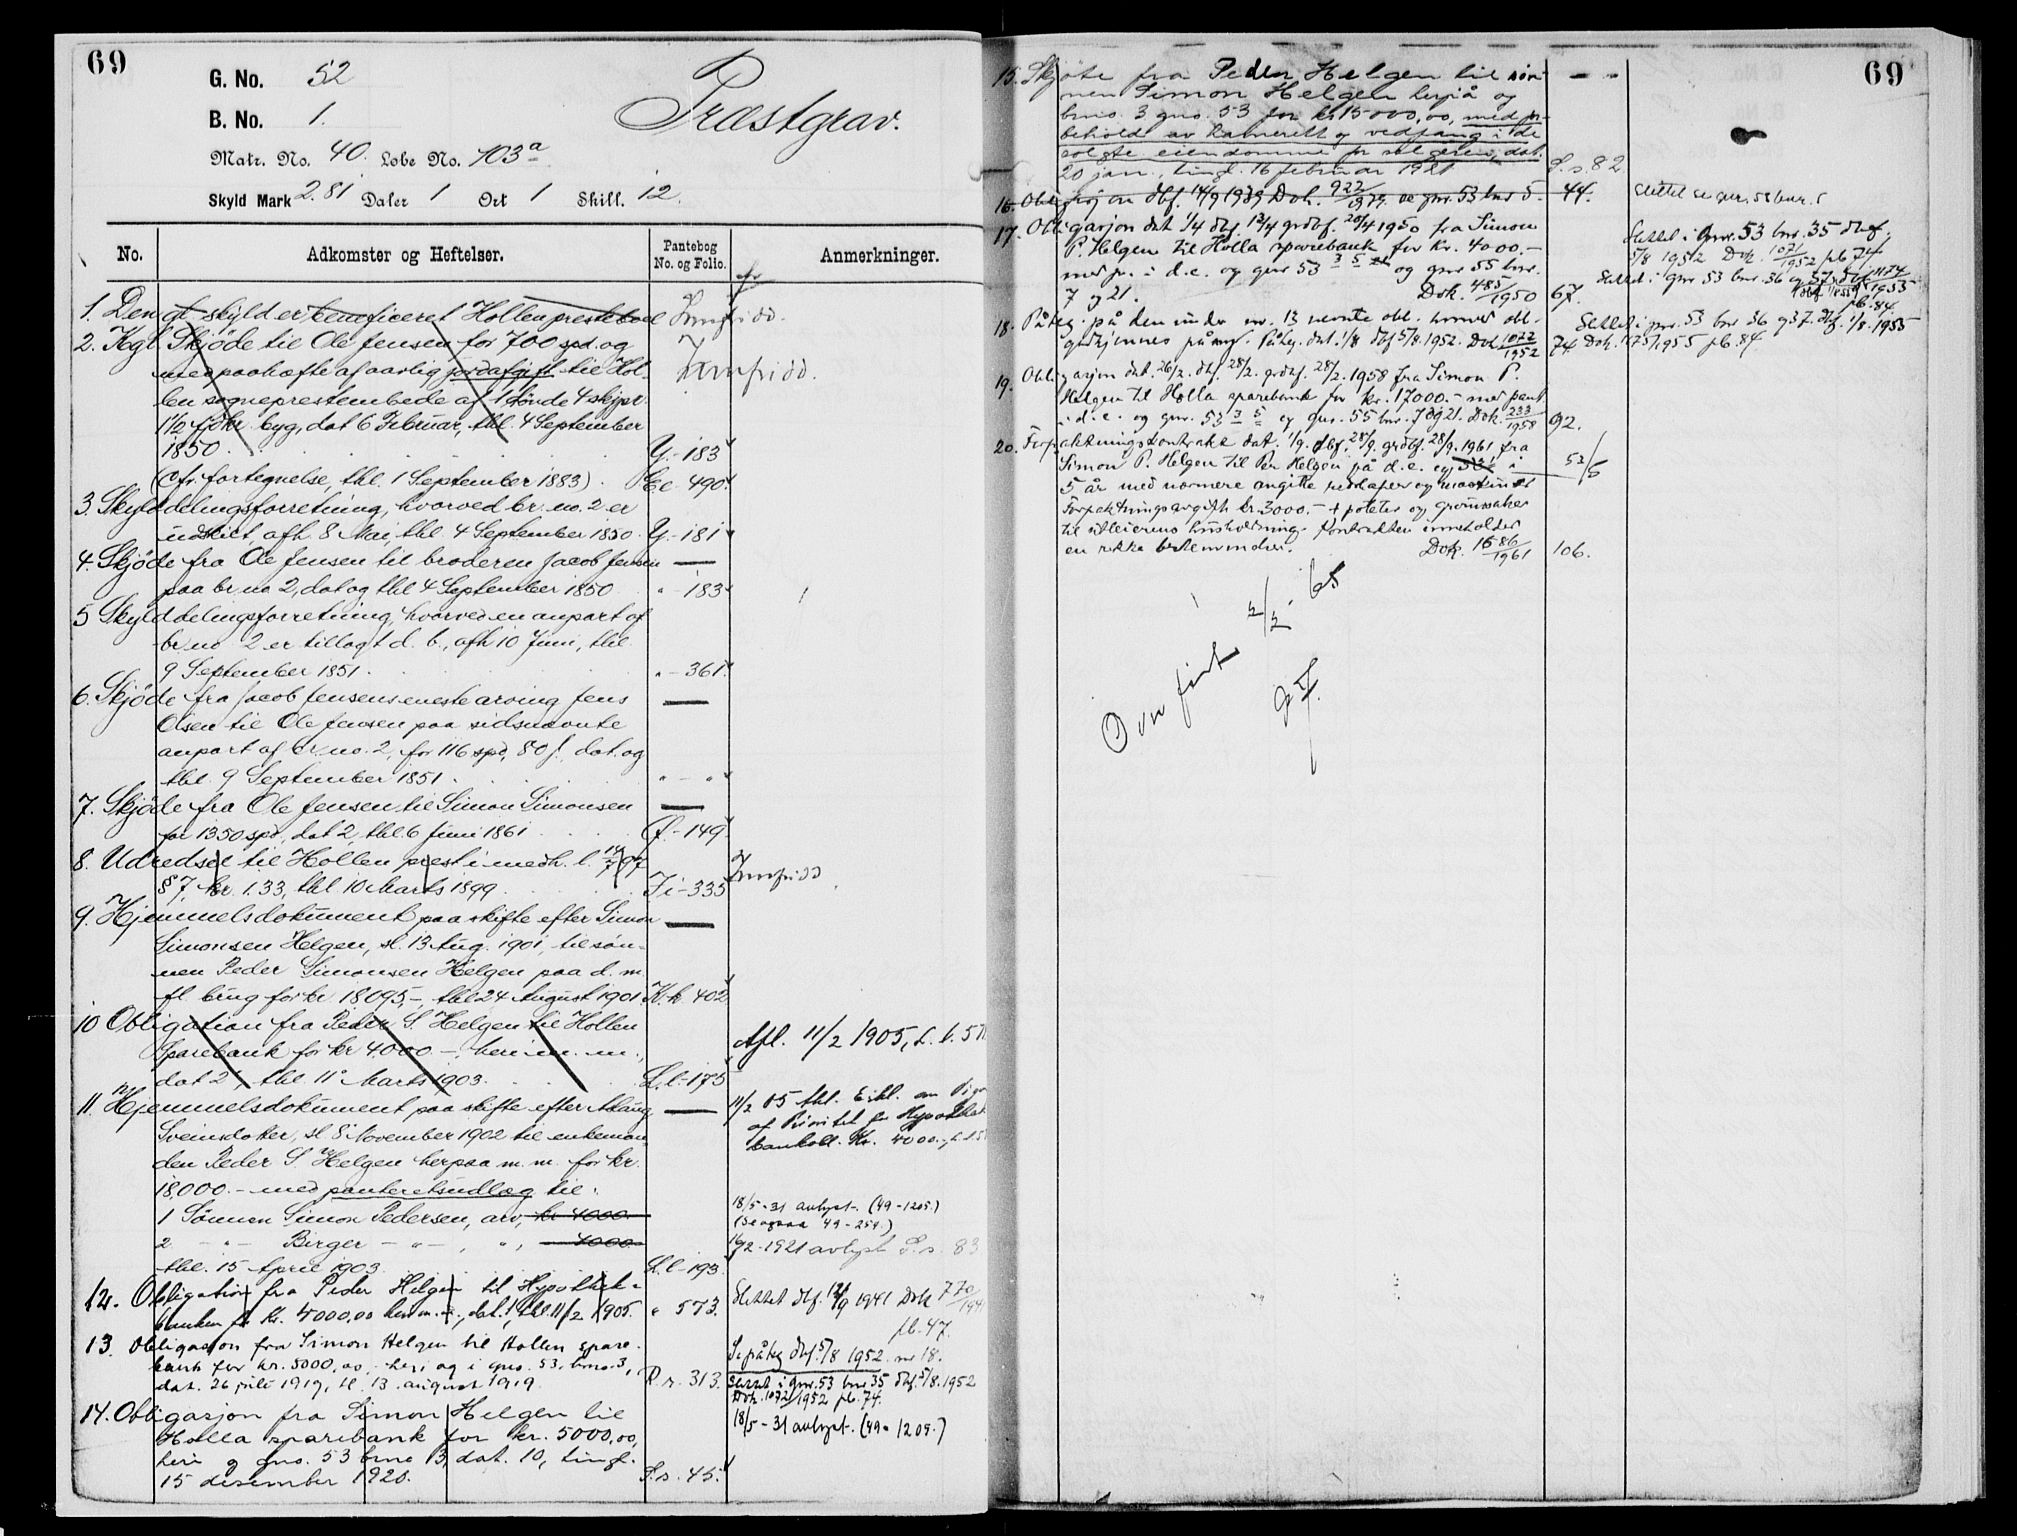 69
G. No. 52
B. No. 1.
Præstgrav.
Matr. No. 40. Løbe No. 103a
Skyld Mark 2.81 Daler 1 Ort 1 Skill. 12.
No. Adkomster og Heftelser. Pantebog No. og Folio. Anmerkninger.
1. Den gl. skyld er beneficeret Hollen prestebol
2. Kgl. Skjøde til Ole Jensen for 700 spd. og
med paahæfte af aarlig jordafgift til Hol-
len sogneprestembede af 1 tønde 4 skjpr.
1 1/2 fdkr. byg, dat 6 Februar, thl. 4 September
1850. Y.-183
(cfr. fortegnelse, thl. 1 September 1883). Ee 490.
3. Skylddelingsforretning, hvorved br. no. 2 er
udskilt, afh. 8 Mai, thl. 4 September 1850. Y.-181
4. Skjøde fra Ole Jensen til broderen Jacob Jensen
paa br. no 2, dat og thl 4 September 1850 " -183
5 Skylddelingsforretning, hvorved en anpart af
br. no 2 er tillagt d. b., afh 10 Juni, thl.
9 September 1851. " -361.
6. Skjøde fra Jacob Jensens eneste arving Jens
Olsen til Ole Jensen paa sidsnævnte
anpart af br. no. 2, for 116 spd, 80 s, dat. og
thl. 9 September 1851. " - "
7. Skjøde fra Ole Jensen til Simon Simonsen
for 1350 spd., dat 2, thl. 6 Juni 1861 -149
8. Udredsel til Hollen prest i medh. l. 97
§ 7, kr. 1.33, thl 10 Marts 1899. Ii-335
9. Hjemmelsdokument paa skifte efter Simon
Simonsen Helgen, sl. 13 Aug. 1901, til søn-
nen Peder Simonsen Helgen paa d. m.
fl. brug for kr. 18095,-, thl 24 August 1901. K.k 402
10 Obligation fra Peder S. Helgen til Hollen
Sparebank for kr 4000.-, heri m. m., Afl. 11/2 1905, L. l. 57
dat 2, thl. 11 Marts 1903. L.l-175
11. Hjemmelsdokument paa skifte efter Aslaug 11/2 05 thl. Erkl. om
Sveinsdatter, sl 8 November 1902 til enkeman- af Prioritet for Hypothek
den Peder S. Helgen herpaa m. m. for kr. bankobl. Kr. 4000.-,
18,000.- med panteretsudlæg til:
1 Sønnen Simon Pedersen, arv, kr 4000. 18/5-31 avlyst. (49-1205.)
(Se ogsaa 49-254.)
2 - " - Birger - " -, ", 4000 16/2-1921 avlyst S.s. 83
thl. 15 April 1903. L.l-193
12. Obligation fra Peder Helgen til Hypothek- Slettet dbf. 12/9 1941 Dok 770/1941
banken for Kr. 4000,00 heri m. m., dat. , thl. 11/2 1905. " 573. pb. 47.
13. Obligasjon fra Simon Helgen til Hollen spare- Se påteg dbf. 5/8 1952 nr 18.
bank for kr. 5000,00 heri og i gno. 53, brno. 3, Slettet i gnr. 53 bnr 35 dbf. 5/8. 1952
dat. 26 juli 1919, tl. 13. august 1919. R r. 313. Dok. 1072/1952 pb. 74.
14. Obligasjon fra Simon Helgen til 18/5-31 avlyst. (49-1209.)
Holla sparebank for kr. 5000,00,
heri og gno. 53 brno 3, dat. 10, tingl.
15 desember 1920. S.s. 45.
69
15. Skjøte fra Peder Helgen til søn-
nen Simon Helgen herpå og
brno. 3 gno. 53 for kr 15000,00, med for-
behold av kamerett og vedfang i de
solgte eiendomme for selgeren, dat.
20 jan., tingl. 16 februar 1921 S. s. 82.
16. Obligasjon dbf. 14/9 1939 Dok. 922/1939 se gnr. 53 bnr 5. 44. Slettet se gnr. 53 bnr. 5
17. Obligasjon dat 1/4 dbf. 12/4 grdbf. 20/4 1950 fra Simon Slettet i Gnr. 53 bnr. 35 dbf.
P. Helgen til Holla sparebank for kr. 4000.- 5/8 1952 Dok. 1071/1952 pb 74
med pr. i d.e. og gnr 53 3 5 og gnr 55 bnr. Slettet i gnr 53 bnr 36 og 37 dbf 1/8 1955
7 og 21. Dok. 485/1950 67. pb. 84
18. Påteg. på den under nr. 13 nevnte obl. hvoretter obl. Slettet i gnr. 53 bnr 36 og 37. dbf. 1/8. 1955
godkjennes på ny. Påteg. dat. 1/8 dbf 5/8. 1952. Dok 1072/1952 74. Dok. 1175/1955 pb. 84.
19. Obligasjon dat. 26/2. dbf. 28/2. grdbf. 28/2. 1958 fra Simon P.
Helgen til Holla sparebank for kr. 17000.- med pant
i d.e. og gnr. 53 3 5 og gnr. 55 bnr. 7 og 21. Dok. 233/1958 92.
20. Forpaktningskontrakt dat. 1/9. dbf. 28/9. grdbf. 28/9. 1961 fra
Simon P. Helgen til Per Helgen på d.e. og 53/5 i 53/5
5 år med nærmere angitte redskaper og maskiner
Forpaktningsavgift kr. 3000.- + poteter og grønnsaker
til utleierens husholdning. Kontrakten inneholder
en rekke bestemmelser. Dok. 1586/1961 106.
Overført 2/2 - 65